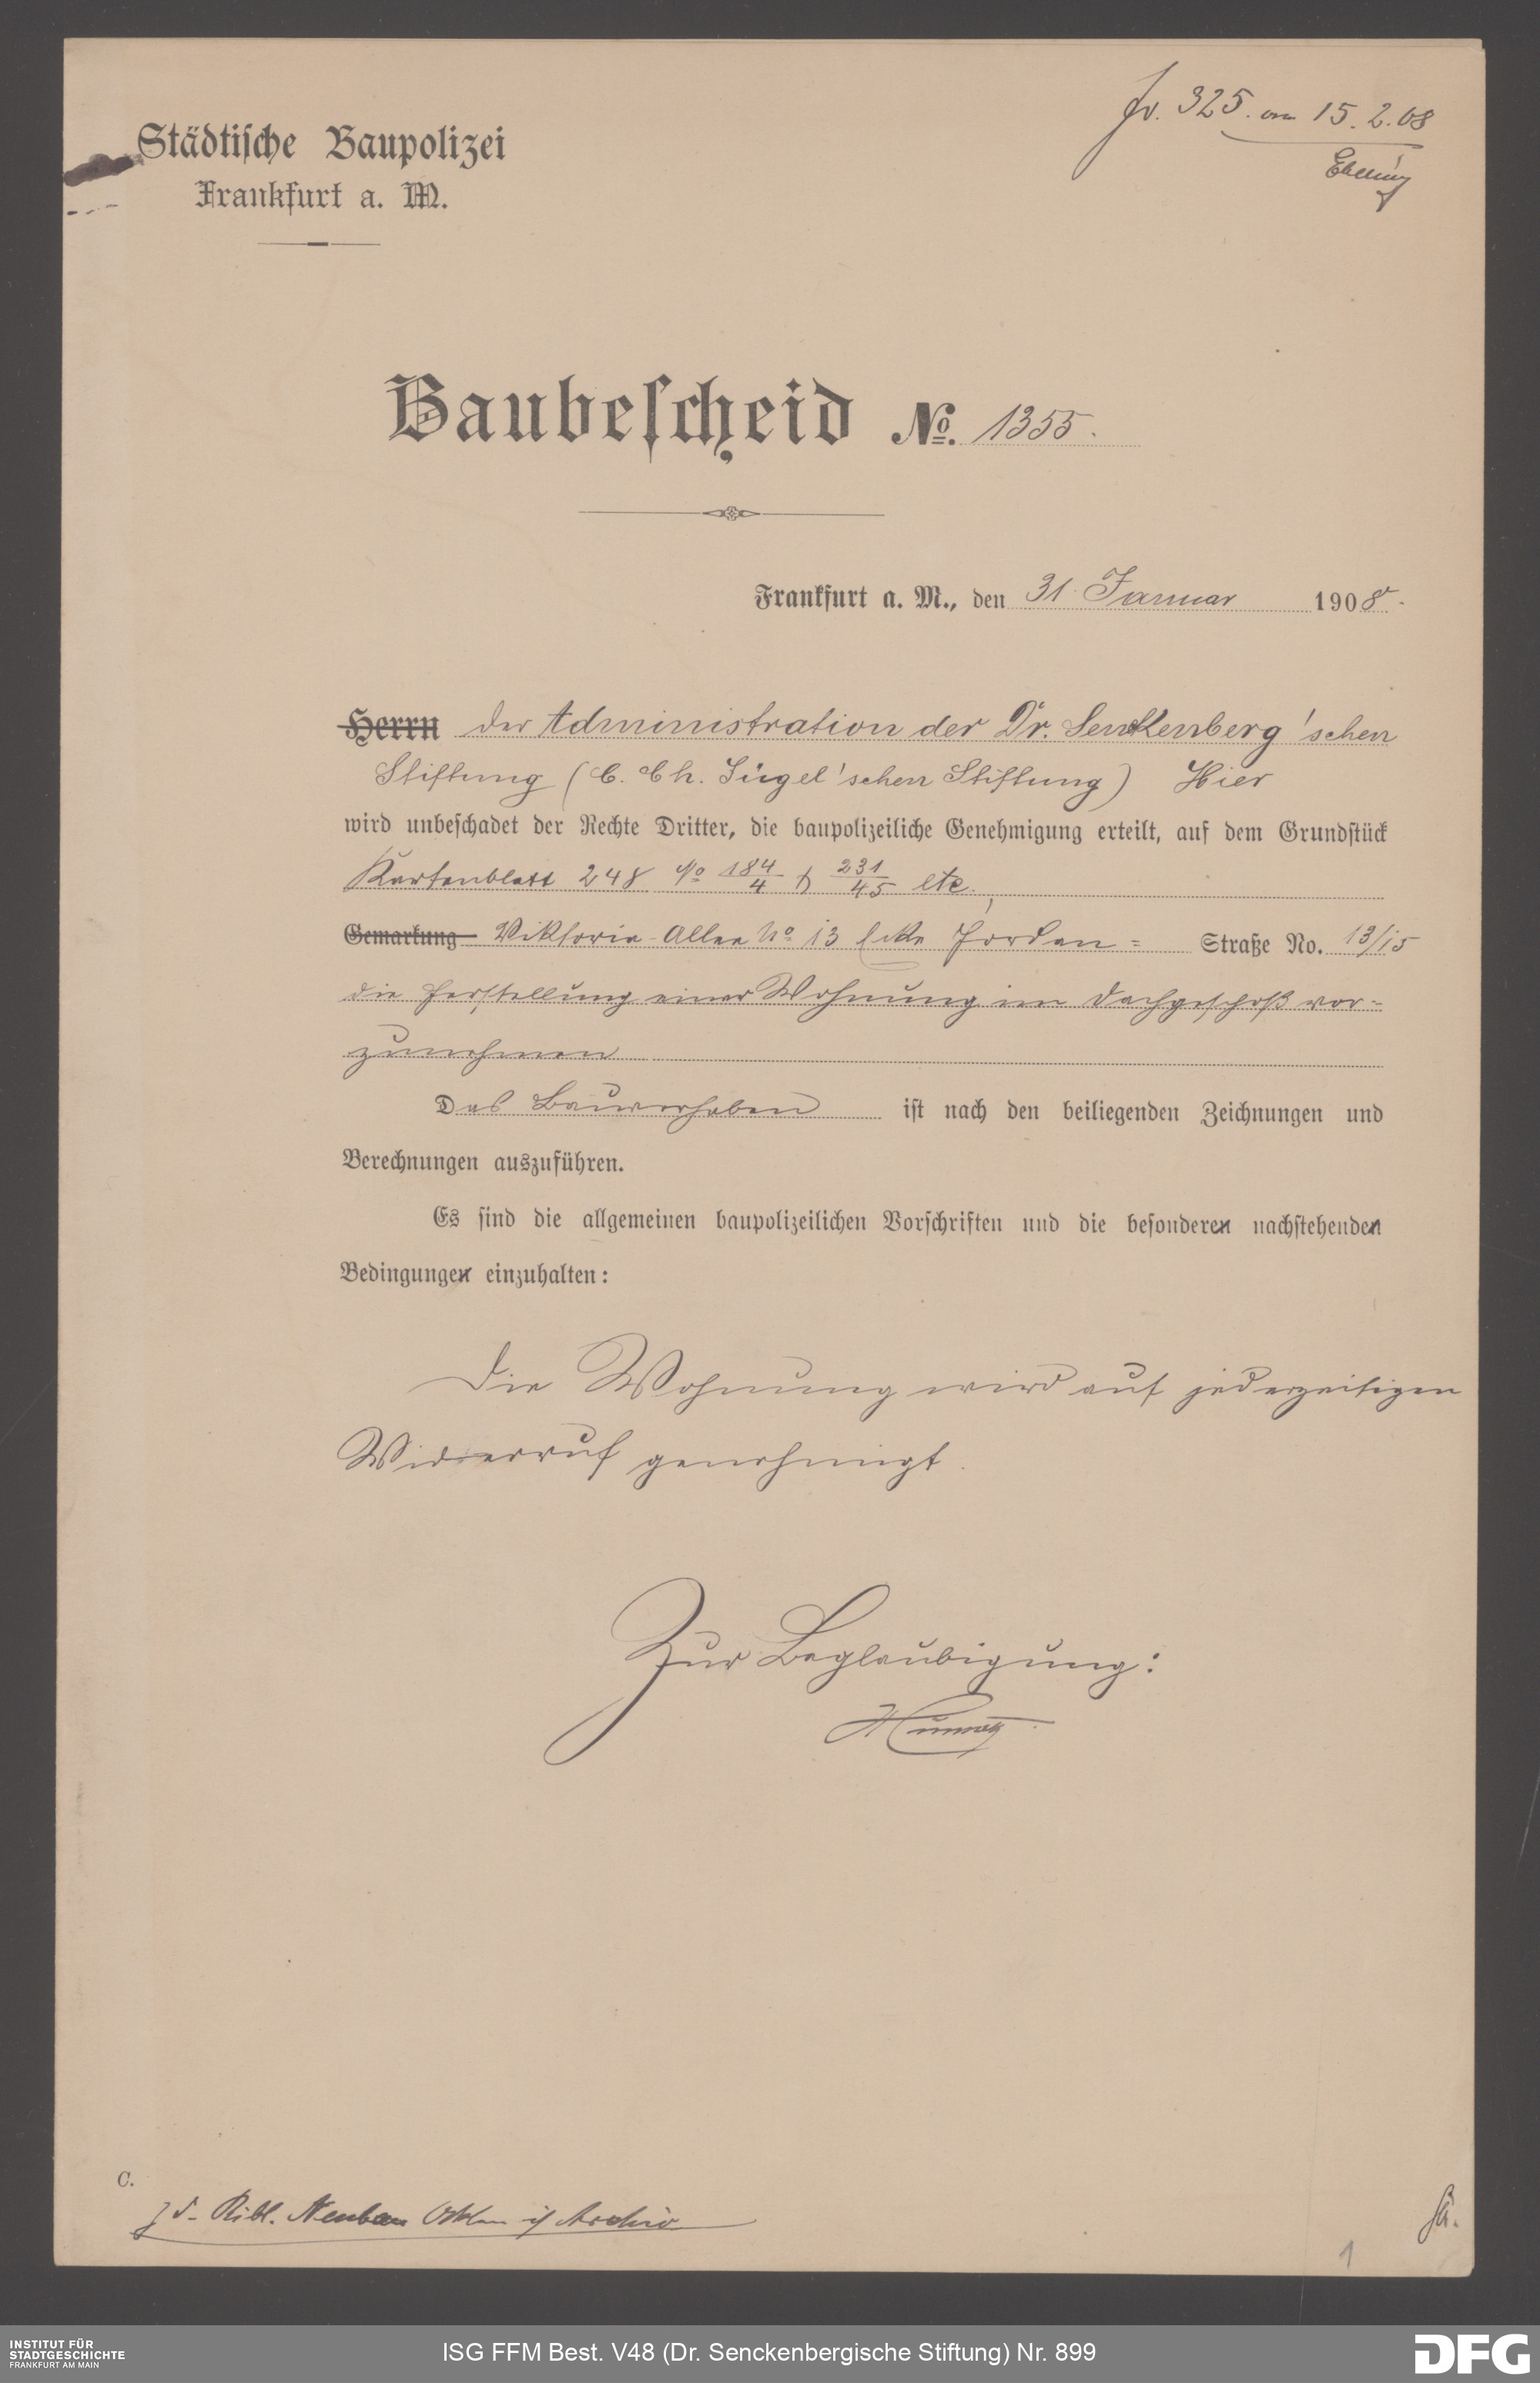 Jr. 325. om 15.2.08
Ebeling
Städtische Baupolizei
Frankfurt a. M.
Baubescheid No. 1355.
Frankfurt a. M., den 31. Januar 1908.
Herrn der Administration der Dr. Senkenberg'schen
Stiftung (C. Ch. Jügel'schen Stiftung) Hier
wird unbeschadet der Rechte Dritter, die baupolizeiliche Genehmigung erteilt, auf dem Grundstück
Kartenblatt 248 No 184/4 & 231/45 etc.
Gemarkung Viktoria-Allee No 13 Ecke Jordan= Straße No. 13/15
die Herstellung einer Wohnung im Dachgeschoß vor=
zunehmen
Das Bauvorhaben ist nach den beiliegenden Zeichnungen und
Berechnungen auszuführen.
Es sind die allgemeinen baupolizeilichen Vorschriften und die besonderen nachstehenden
Bedingungen einzuhalten:
Die Wohnung wird auf jederzeitigen
Widerruf genehmigt.
Zur Beglaubigung:
C.
z d. Bibl. Neubau Akten i/ Archiv
1
INSTITUT FÜR
STADTGESCHICHTE
FRANKFURT AM MAIN
ISG FFM Best. V48 (Dr. Senckenbergische Stiftung) Nr. 899
DFG